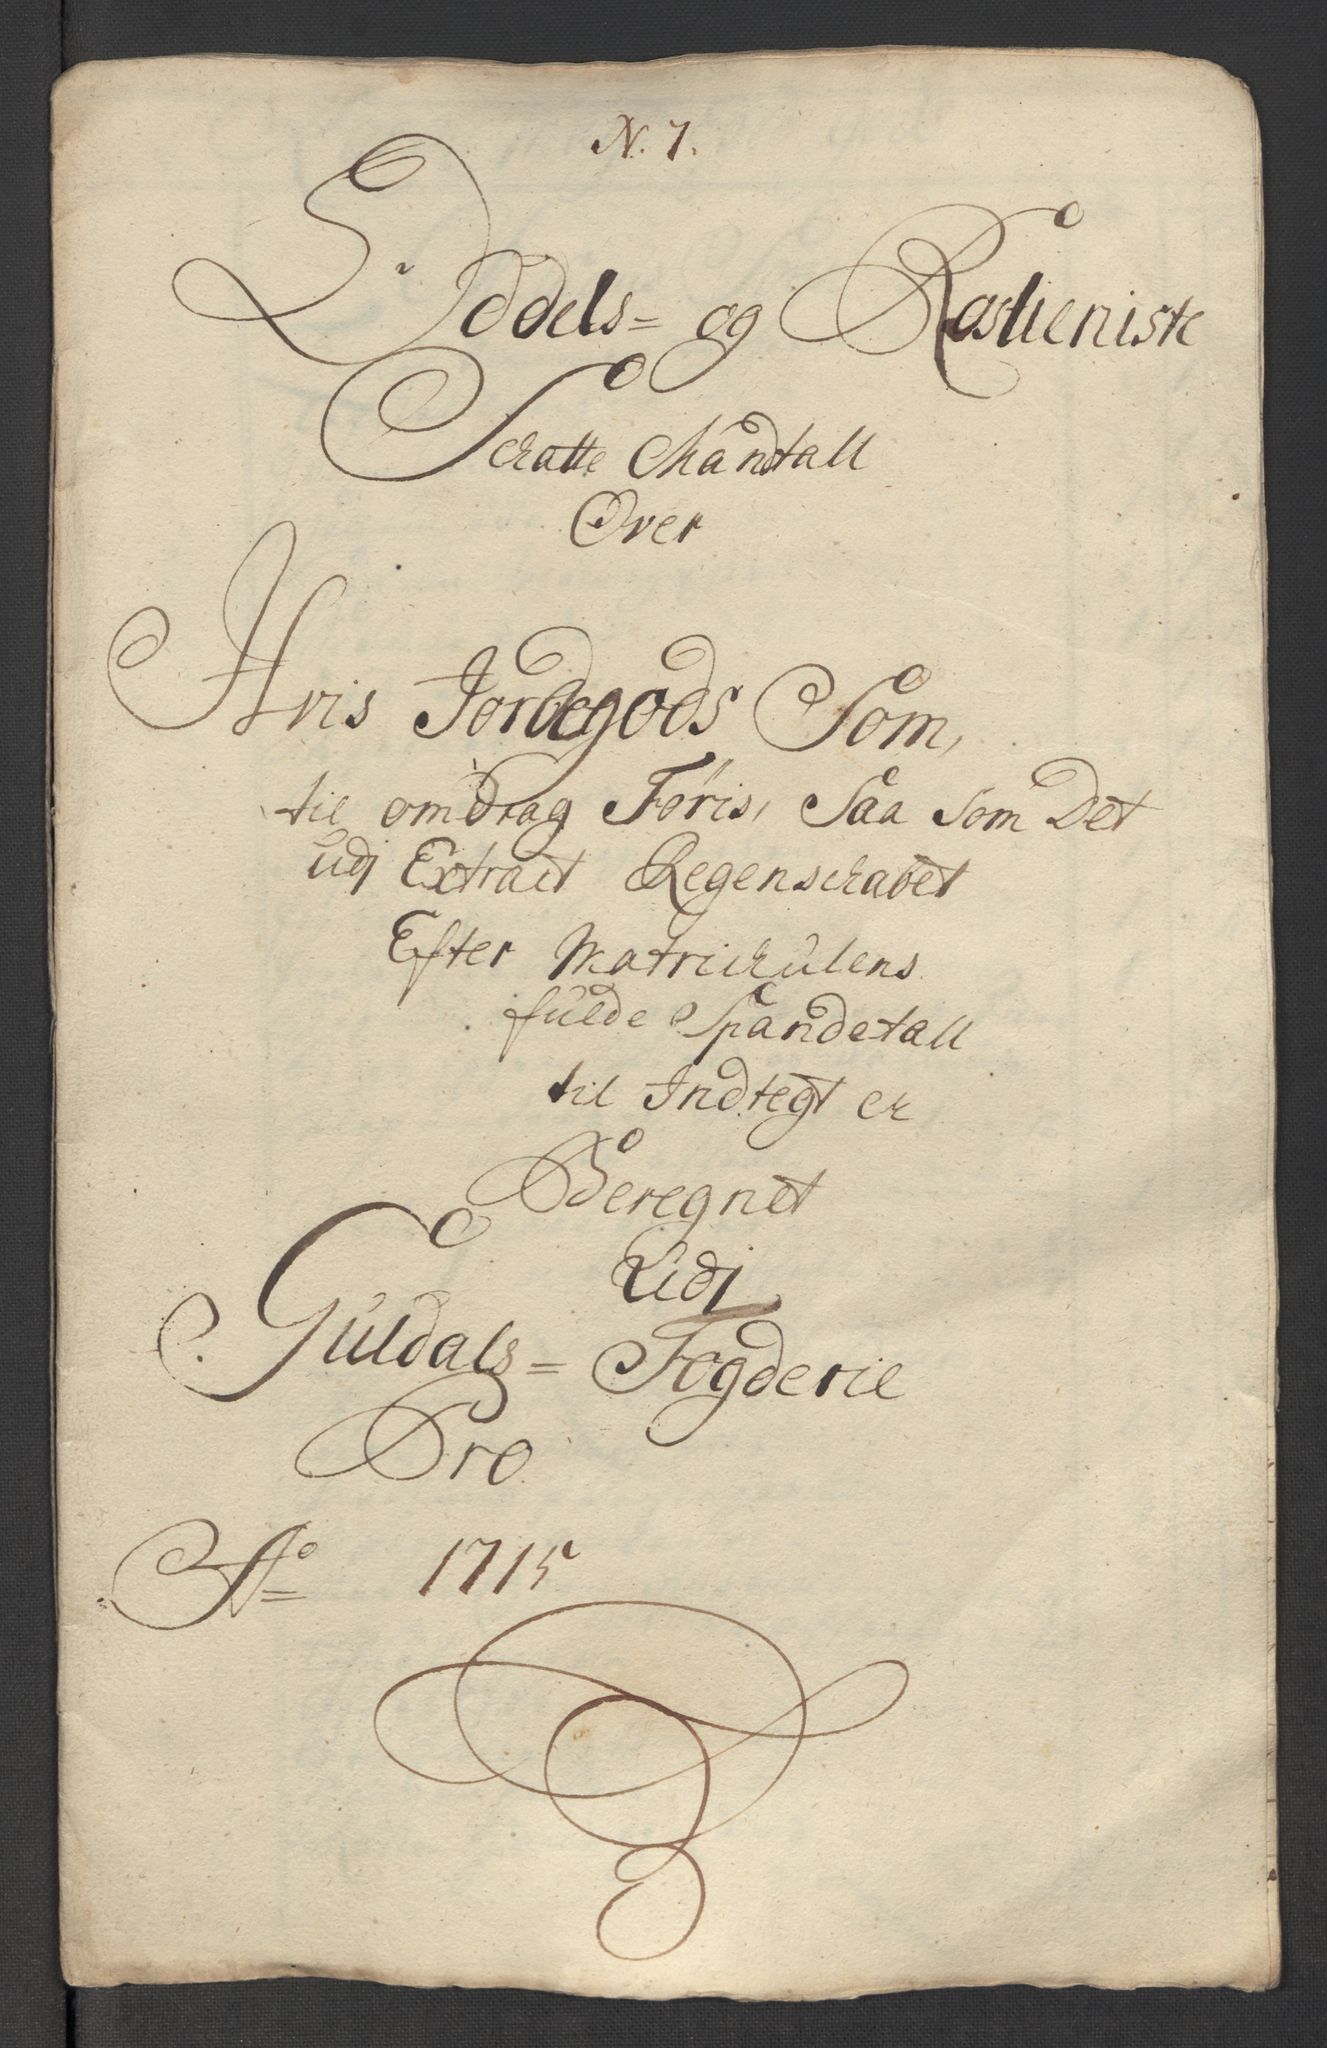 N. 7.
Oddels= og Rostieniste
Schatte Mandtall
Over
Hvis Jordegods Som,
til omdrag Føris, Saa Som Det
udj Extract Regenschabet
Efter Matrichulens
fulde Spandetall
til Indtegt er
Beregnet
Udj
Guldals= Fogderie
Pro
Ao 1715